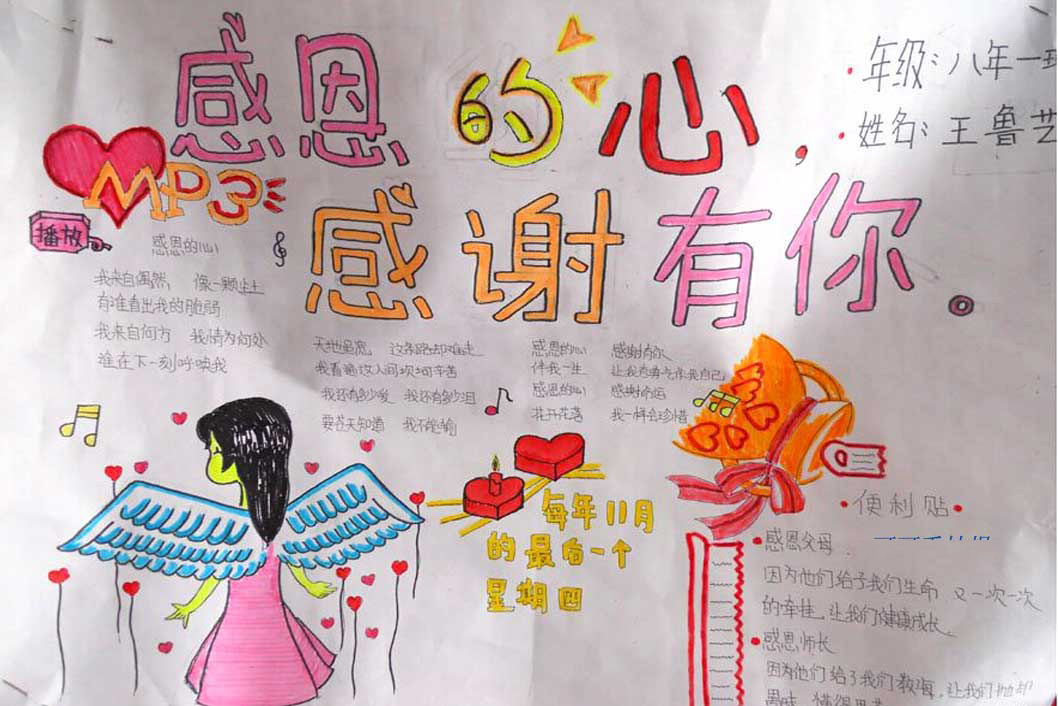 感恩的心，
感谢有你。
年级：八年一班
姓名：王鲁艺
MP3
播放
感恩的心
我来自偶然， 像一颗尘土
有谁看出我的脆弱
我来自何方 我情为何处
谁在下一刻呼唤我
天地虽宽 这条路却难走
我看遍这人间坎坷辛苦
我还有多少爱 我还有多少泪
要苍天知道 我不能输
感恩的心 感谢有你
伴我一生 让我有勇气作我自己
感恩的心 感谢命运
花开花落 我一样会珍惜
每年11月
的最后一个
星期四
便利贴
感恩父母
因为他们给了我们生命 又一次一次
的牵挂，让我们健康成长。
感恩师长
因为他们给了我们教诲，让我们抛却
愚昧，懂得思考